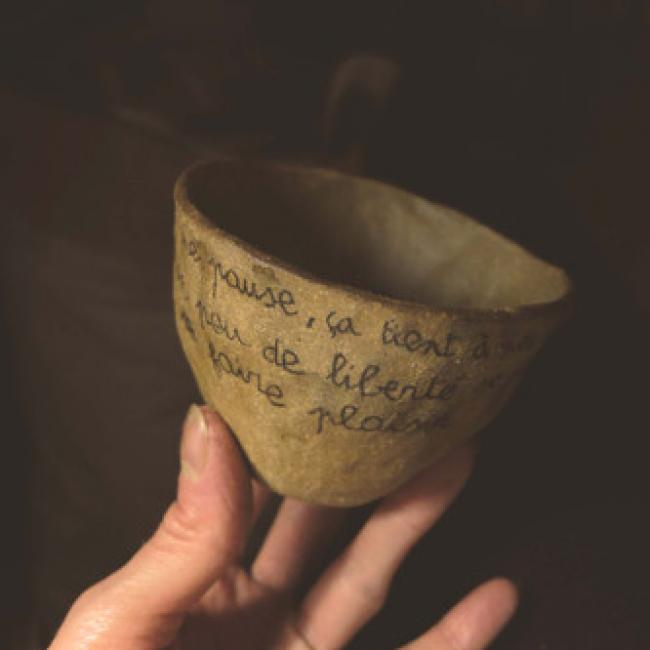 pause, ça tient à
peu de liberté
faire plaisir